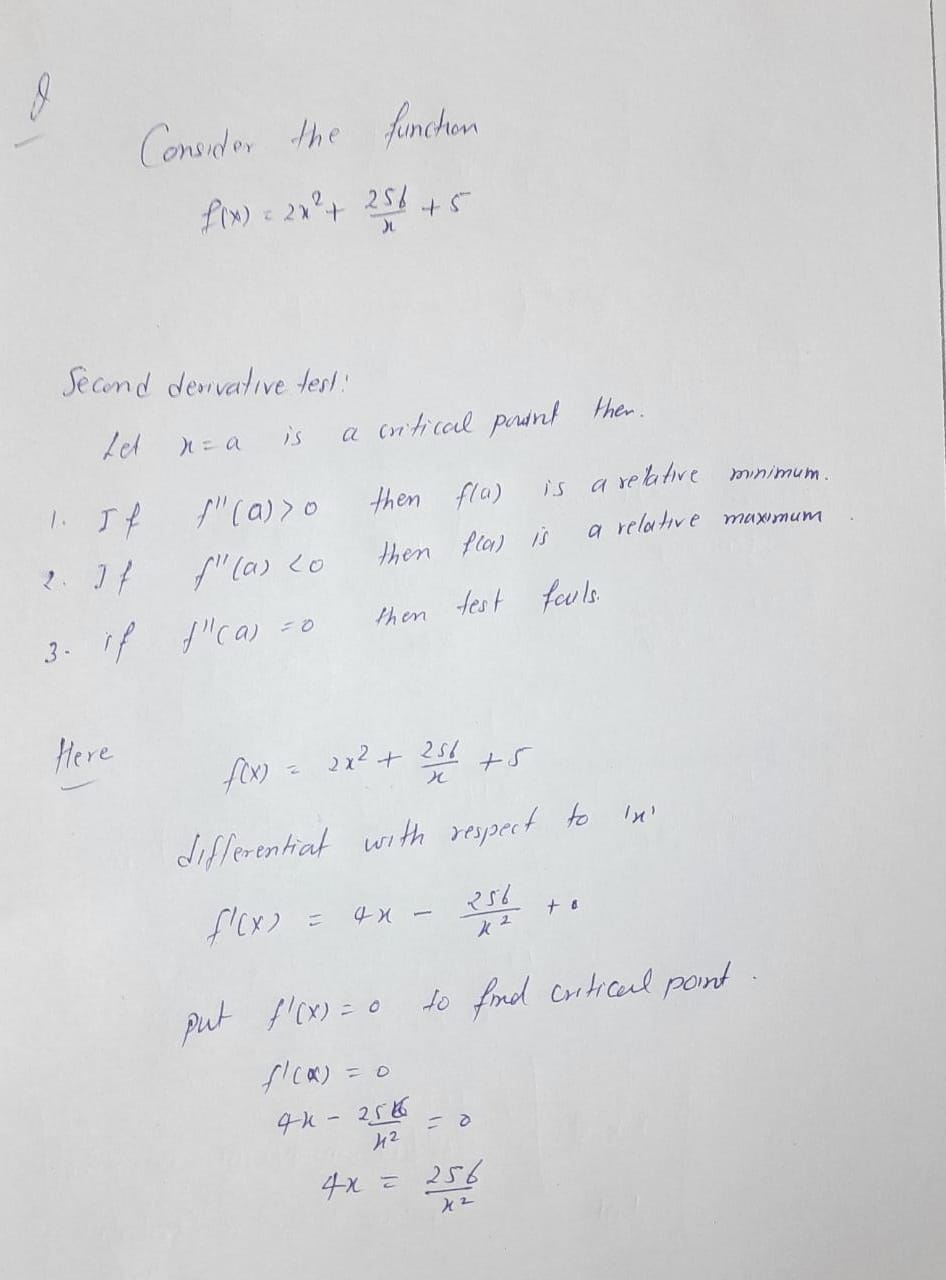 Q
Consider the function
f(x) = 2x² + 256/x + 5
Second derivative test:
Let x = a is a critical point then.
1. If f''(a) > 0 then f(a) is a relative minimum.
2. If f''(a) < 0 then f(a) is a relative maximum.
3. if f''(a) = 0 then test fails.
Here f(x) = 2x² + 256/x + 5
differentiat with respect to 'x'
f'(x) = 4x - 256/x² + 0
put f'(x) = 0 to find critical point.
f'(x) = 0
4x - 256/x² = 0
4x = 256/x²